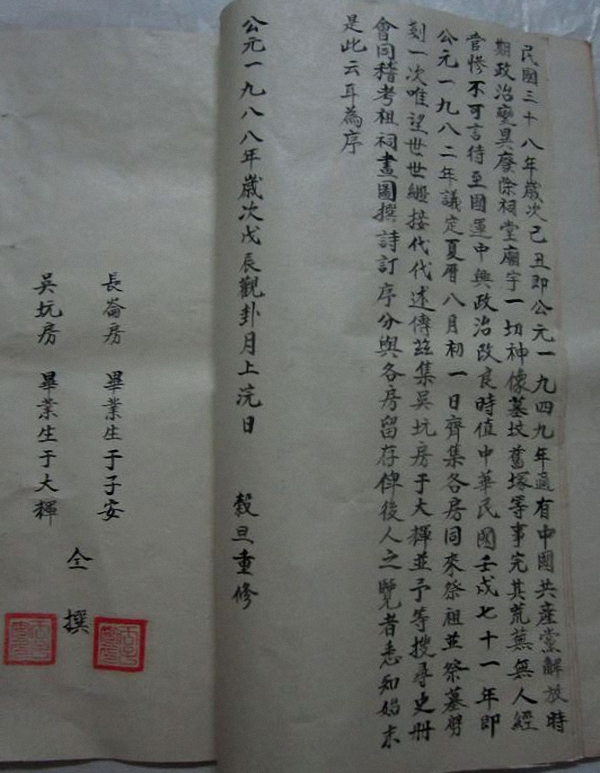 民國三十八年歲次己丑即公元一九四九年適有中國共產黨解放時
期政治變異廢除祠堂廟宇一切神像墓墳舊塚等事完其荒蕪無人經
營慘不可言待至國運中興政治改良時值中華民國壬戌七十一年即
公元一九八二年議定夏曆八月初一日齊集各房同來祭祖並祭墓劈
刻一次唯望世世繼接代代述傳茲集吳坑房于大輝並予等搜尋史冊
會同稽考祖祠畫圖撰詩訂序分與各房留存俾後人之覽者悉知始末
是此云耳為序
公元一九八八年歲次戊辰觀卦月上浣日 穀旦重修
長崙房 畢業生于子安
吳坑房 畢業生于大輝
仝 撰